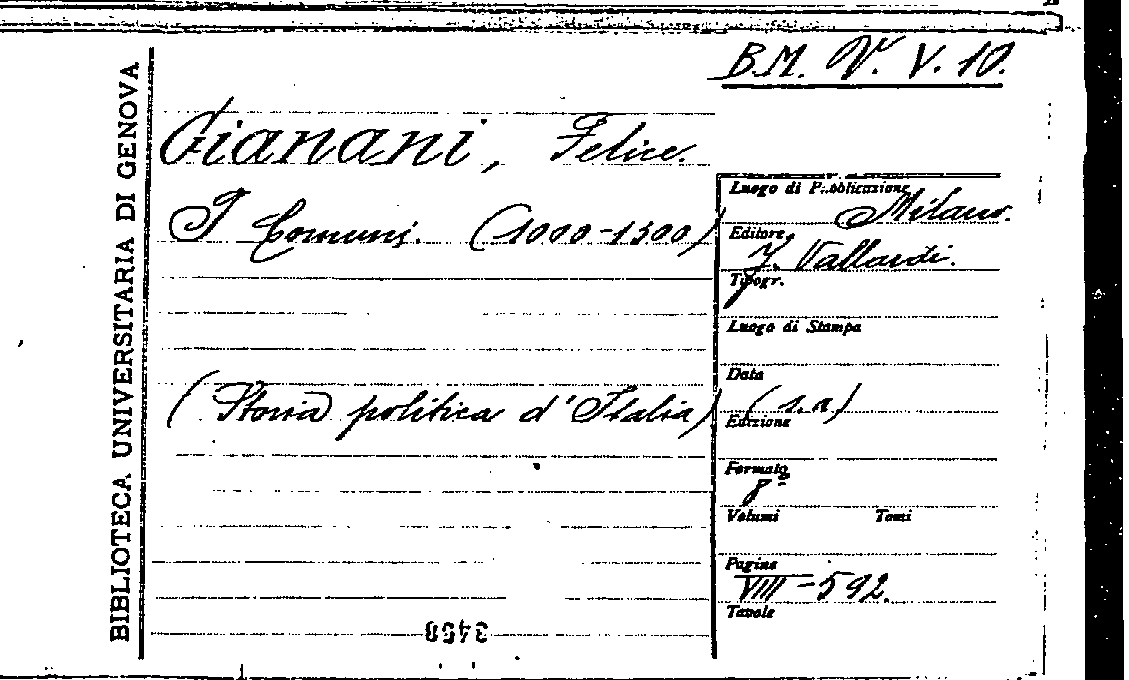 B.M. V. V. 10.
BIBLIOTECA UNIVERSITARIA DI GENOVA
Gianani, Felice.
I Comuni. (1000-1300)
(Storia politica d'Italia)
Luogo di Pubblicazione
Milano.
Editore
F. Vallardi.
Tipogr.
Luogo di Stampa
Data
(s.a)
Edizione
Formato
8°
Volumi Tomi
Pagine
VIII-592.
Tavole